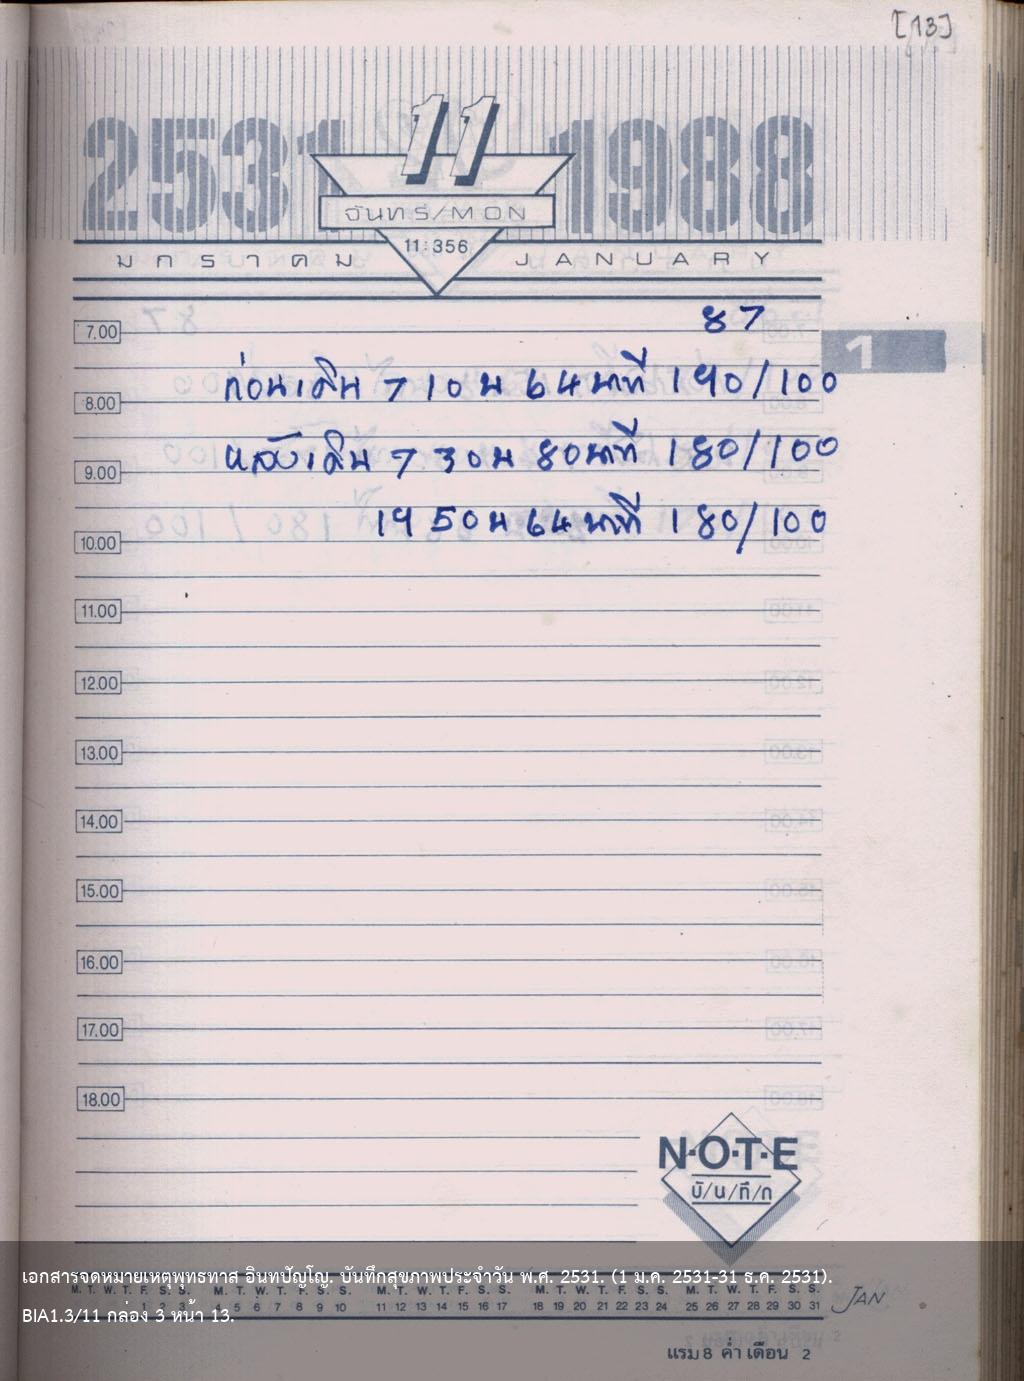 [13]
2531 11 1988
จันทร์/MON
11:356
มกราคม JANUARY
87
7.00
1
ก่อนเดิน 7 10 น 64 นาที 190/100
8.00
หลังเดิน 7 30 น 80 นาที 180/100
9.00
19 50 น 64 นาที 180/100
10.00
11.00
12.00
13.00
14.00
15.00
16.00
17.00
18.00
N·O·T·E
บั/น/ทึ/ก
เอกสารจดหมายเหตุพุทธทาส อินทปัญโญ. บันทึกสุขภาพประจำวัน พ.ศ. 2531. (1 ม.ค. 2531-31 ธ.ค. 2531).
M. T. W. T. F. S. S. M. T. W. T. F. S. S. M. T. W. T. F. S. S. M. T. W. T. F. S. S. M. T. W. T. F. S. S.
1 2 3 4 5 6 7 8 9 10 11 12 13 14 15 16 17 18 19 20 21 22 23 24 25 26 27 28 29 30 31 JAN
BIA1.3/11 กล่อง 3 หน้า 13.
แรม 8 ค่ำ เดือน 2